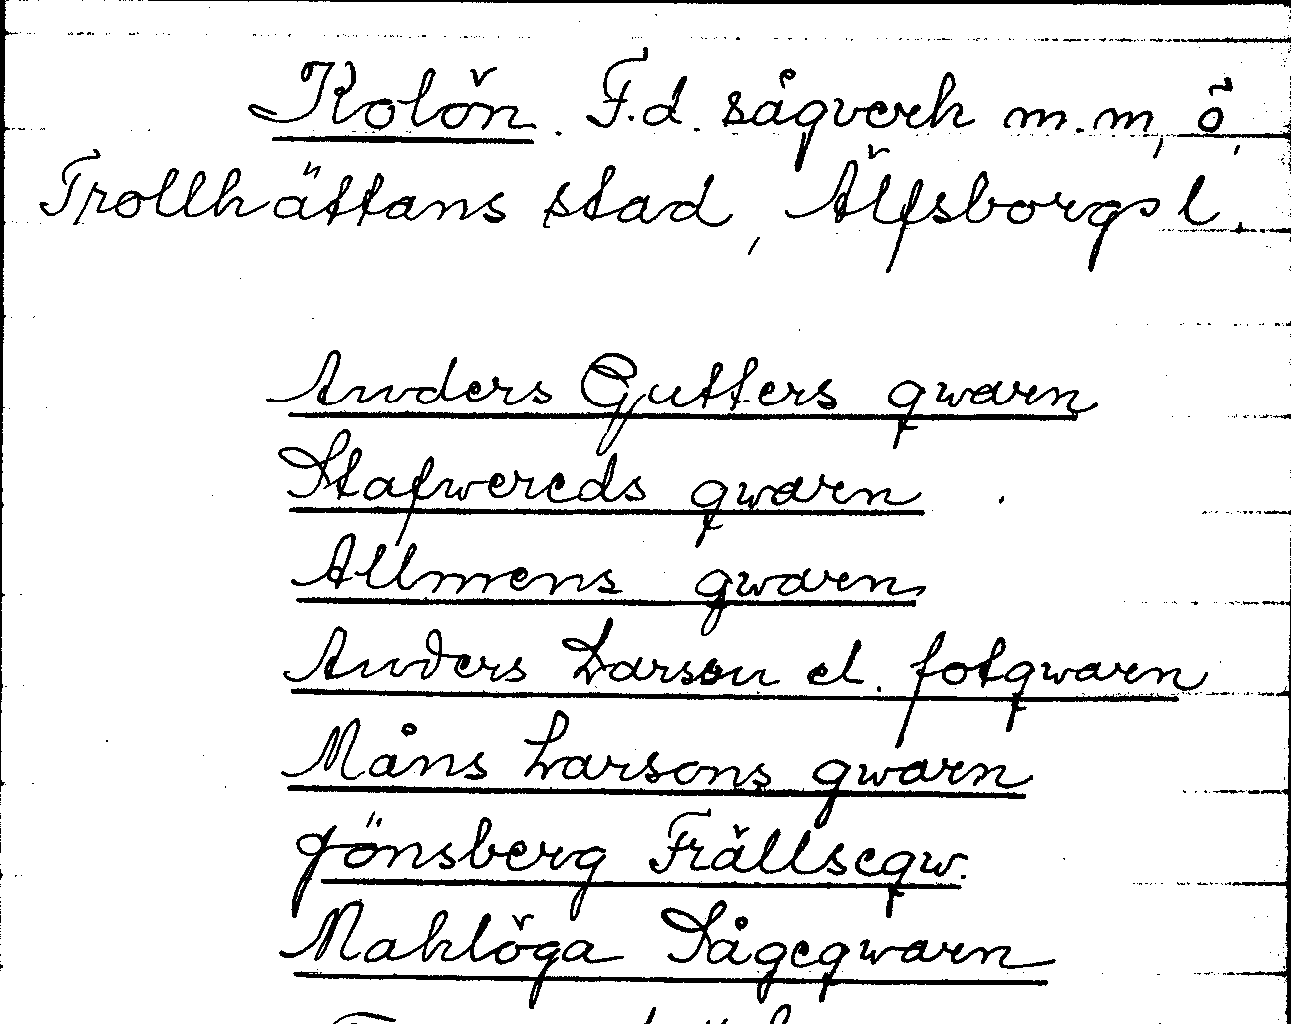 Kolön. F.d. sågverk m.m, ö,
Trollhättans stad, Älfsborgs l.
Anders Gutters qwarn
Stafwereds qwarn
Allmens qwarn
Anders Larson el. fotqwarn
Måns Larsons qwarn
Jönsberg Frällseqw.
Mahlöga Sågeqwarn